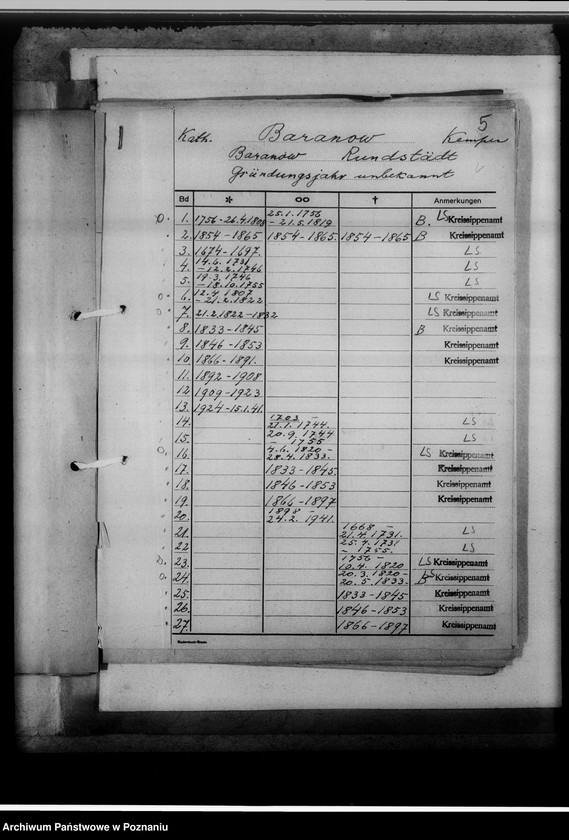 5
Kath. Baranow Kempen
Baranow Rundstädt
Gründungsjahr unbekannt
Bd * ∞ † Anmerkungen
1. 1756-26.4.1808 25.1.1756 - 21.5.1819 B. LS Kreissippenamt
2. 1854-1865 1854-1865 1854-1865 B Kreissippenamt
3. 1674-1697. LS
4. 14.6.1731 - 12.2.1746 LS
5. 19.3.1746 - 18.10.1755 LS
6. 12.4.1807 - 21.2.1822 LS Kreissippenamt
7. 21.2.1822-1832 LS Kreissippenamt
8. 1833-1845 B Kreissippenamt
9. 1846-1853 Kreissippenamt
10. 1866-1891. Kreissippenamt
11. 1892-1908
12. 1909-1923
13. 1924-15.1.41.
14. 1703 - 21.1.1744. LS
15. 20.9.1744 - 1755 LS
16. 4.6.1820 - 28.4.1833. LS Kreissippenamt
17. 1833-1845 Kreissippenamt
18. 1846-1853 Kreissippenamt
19. 1866-1897 Kreissippenamt
20. 1898 - 24.2.1941.
21. 1668 - 21.4.1731. LS
22. 25.4.1731 - 1755. LS
23. 1756 - 10.4.1820 LS Kreissippenamt
24. 20.3.1820 - 20.5.1833. LS B Kreissippenamt
25. 1833-1845 Kreissippenamt
26. 1846-1853 Kreissippenamt
27. 1866-1897 Kreissippenamt
Archiwum Państwowe w Poznaniu